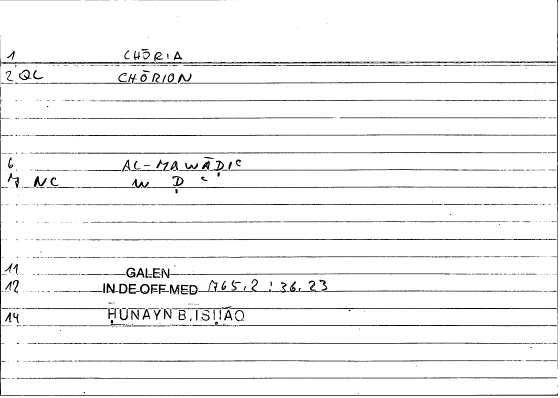 1 CHŌRIA
2 QL CHŌRION
6 AL-MAWĀḌIʿ
7 NC W Ḍ ʿ
11 GALEN
12 IN DE OFF MED 765,2 : 36.23
14 ḤUNAYN B. ISḤĀQ